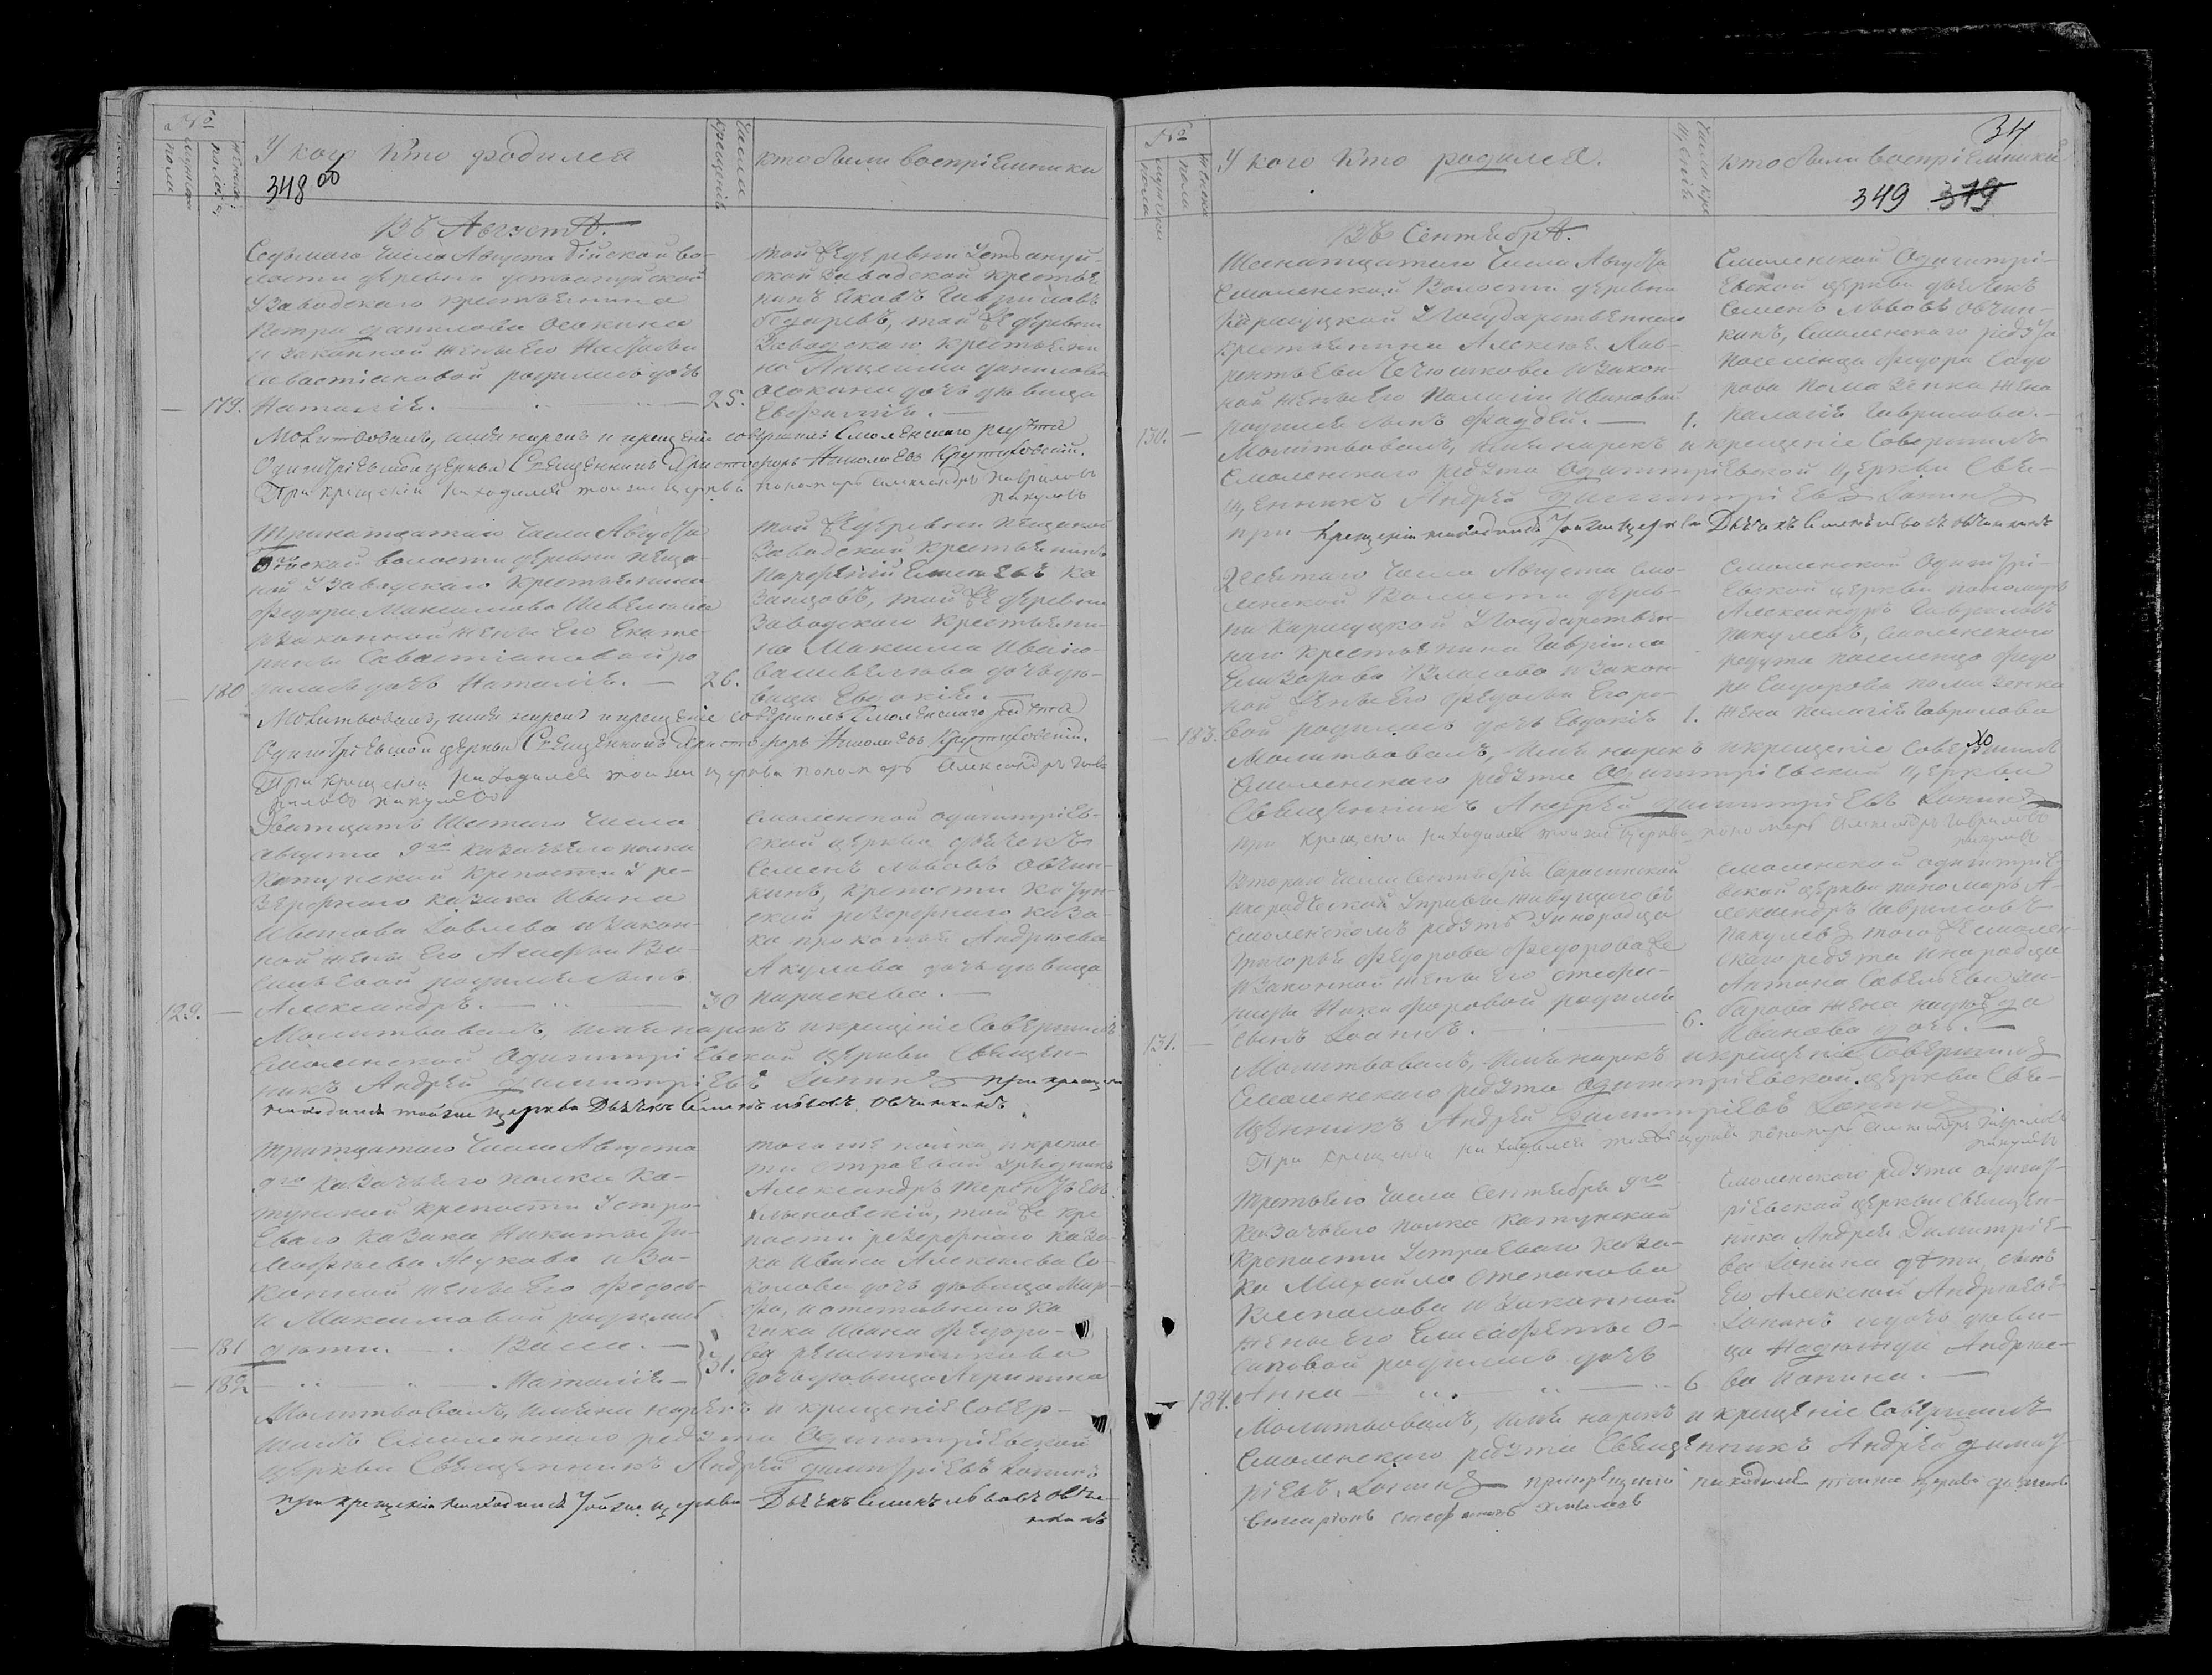 №
мужеска пола
женска пола
У кого кто родился
348 об
числа крещенія
кто были воспріемники
Въ Августѣ.
Седьмаго числа Августа Бійской во-
лости деревни Устьануйской
У Заводскаго крестьянина
Петра Данилова Осокина
и законной жены его Настасьи
Савастіановой родилась дочь
— 179. Наталія. — 25.
той же деревни Устьануй-
ской Заводской крестья-
нинъ Яковъ Гавриловъ
той же деревни
Заводскаго крестьяни
на Анисима Данилова
Осокина дочь дѣвица
Евфимія. —
Молитвовалъ, имя нарекъ и крещеніе совершилъ Смоленскаго редута
Одигитріевской церкви Священникъ Христофоръ Николаевъ Крутиховскій.
При крещеніи находился тойже церкви пономарь Александръ Гавриловъ
Пакулевъ
Тринатцатаго числа Августа
Бійской волости деревни Пеща-
ной У Заводскаго крестьянина
Федора Максимова
и законной жены его Екате-
рины Савастіановой ро
— 180 дилась дочь Наталія. — 26.
той же деревни Пещаной
Заводской крестьянинъ
Парфеній Елисѣевъ Ка
занцовъ, той же деревни
Заводскаго крестьяни-
на Максима Ивано-
ва дочь дѣ-
вица Евдокія. —
Молитвовалъ, имя нарекъ и крещеніе совершилъ Смоленскаго редута
Одигитріевской церкви Священникъ Христофоръ Николаевъ Крутиховскій.
При крещеніи находился тойже церкви пономарь Александръ Гав
риловъ Пакулевъ
Дватцать Шестаго числа
Августа 9го Казачьяго полка
Катунской крепости У ре-
зервнаго казака Ивана
Иванова и закон-
ной жены его Агафьи Ва-
сильевой родился сынъ
129. — Александръ. — 30
Смоленской Одигитріев-
ской церкви дьячекъ
Семенъ Львовъ Овчин-
кинъ, крепости Катун-
ской резервнаго каза-
ка Прокопья Андрѣева
Акулова дочь дѣвица
Параскева. —
Молитвовалъ, имя нарекъ и крещеніе совершилъ
Смоленской Одигитріевской церкви Священ-
никъ Андрей Димитріевъ Лапинъ при крещеніи
находился тойже церкви Дьячекъ Семенъ Львовъ Овчинкинъ.
Тритцатаго числа Августа
9го Казачьяго полка Ка-
тунской крепости У стро-
еваго казака Никиты Ти-
мофѣева и за-
конной жены его Федось-
и Максимовой родились
— 181 дѣти. — Васса. —
— 182 — Наталія — 31.
тогоже полка и крепос-
ти строевой Урядникъ
Александръ Терентьевъ
той же кре
пости резервнаго каза-
ка Ивана Алексѣева Со-
колова дочь дѣвица Мар-
фа, и отставнаго ка
зака Ивана Федоро-
ва Решетникова
дочь дѣвица Агрипина
Молитвовалъ, имяна нарекъ и крещеніе совер-
шилъ Смоленскаго редута Одигитріевской
церкви Священникъ Андрей Димитріевъ Лапинъ
при крещеніи находился тойже церкви Дьячекъ Семенъ Львовъ Овчи-
нкинъ
№
мужеска пола
женска пола
У кого кто родился.
числа крещенія
кто были воспріемники
34
349 379
Въ Сентябрѣ.
Шеснатцатаго числа Августа
Смоленской Волости деревни
У Государственнаго
крестьянина Алексѣя Лав-
рентьева и закон-
ной жены его Палагіи Ивановой
130. — родился сынъ Фаддей. — 1.
Смоленской Одигитрі-
евской церкви дьячекъ
Семенъ Львовъ Овчин-
кинъ, Смоленскаго редута
поселенца Федора Сидо
рова жена
Палагія Гаврилова. —
Молитвовалъ, имя нарекъ и крещеніе совершилъ
Смоленскаго редута Одигитріевской церкви Свя-
щенникъ Андрей Димитріевъ Лапинъ
при крещеніи находился тойже церкви Дьячекъ Семенъ Львовъ Овчинкинъ
числа Августа Смо-
ленской Волости дерев-
ни У Государствен-
наго крестьянина Гавріила
Елизарова Власова и закон-
ной жены его Федосьи Егоро-
— 183. вой родилась дочь Евдокія 1.
Смоленской Одигитрі-
евской церкви пономарь
Александръ Гавриловъ
Пакулевъ, Смоленскаго
редута поселенца Федо
ра Сидорова
жена Палагія Гаврилова
Молитвовалъ, имя нарекъ и крещеніе совершилъ
Смоленскаго редута Одигитріевской церкви
Священникъ Андрей Димитріевъ Лапинъ
при крещеніи находился тойже церкви пономарь Александръ Гавриловъ
Пакулевъ
Втораго числа Сентября
инородческой Управы живущаго въ
Смоленскомъ редутѣ У инородца
Григорья Федорова
и законной жены его Стефа-
ниды Никифоровой родился
131. — сынъ Іоаннъ. — 6.
Смоленской Одигитріе-
вской церкви пономарь А-
лександръ Гавриловъ
Пакулевъ того же Смолен-
скаго редута инородца
Антона Савельева
жена Надежда
Иванова дочь. —
Молитвовалъ, имя нарекъ и крещеніе совершилъ
Смоленскаго редута Одигитріевской церкви Свя-
щенникъ Андрей Димитріевъ Лапинъ
При крещеніи находился тойже церкви пономарь Александръ Гавриловъ
Пакулевъ
Третьяго числа Сентября 9го
Казачьяго полка Катунской
крепости У строеваго каза-
ка Михайла Степанова
и законной
жены его Елисафеты О-
сиповой родилась дочь
— 184. Анна — 6
Смоленскаго редута Одигит-
ріевской церкви Священ-
ника Андрея Димитріе-
ва Лапина дѣти, сынъ
его Алексѣй Андрѣевъ
Лапинъ и дочь дѣви-
ца Надежда Андрѣе-
ва Лапина. —
Молитвовалъ, имя нарекъ и крещеніе совершилъ
Смоленскаго редута Священникъ Андрей Димит-
ріевъ Лапинъ при крещеніи находился тойже церкви дьячекъ